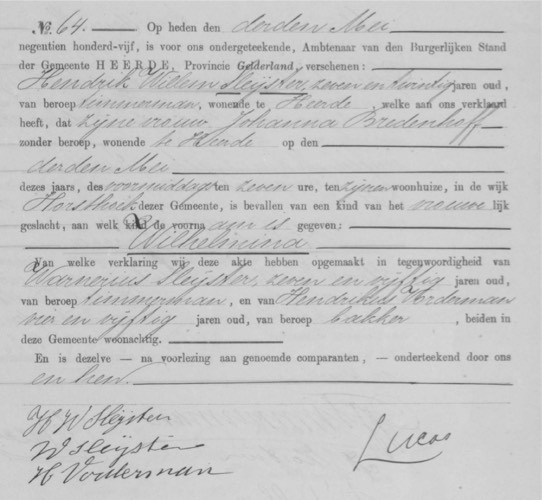 No. 64. Op heden den derden Mei
negentien honderd-vijf, is voor ons ondergeteekende, Ambtenaar van den Burgerlijken Stand
der Gemeente HEERDE, Provincie Gelderland, verschenen:
Hendrik Willem Sleijster, zeven en twintig jaren oud,
van beroep timmerman, wonende te Heerde, welke aan ons verklaard
heeft, dat zijne vrouw Johanna Bredenhoff
zonder beroep, wonende te Heerde op den
derden Mei
dezes jaars, des voormiddags ten zeven ure, ten zijnen woonhuize, in de wijk
Horsthoek dezer Gemeente, is bevallen van een kind van het vrouwelijk
geslacht, aan welk kind de voornaam is gegeven:
Wilhelmina
Van welke verklaring wij deze akte hebben opgemaakt in tegenwoordigheid van
Warnerus Sleijster, zeven en vijftig jaren oud,
van beroep timmerman, en van Hendrikus Vorderman
vier en vijftig jaren oud, van beroep bakker, beiden in
deze Gemeente woonachtig.
En is dezelve — na voorlezing aan genoemde comparanten, — onderteekend door ons
en hen.
H W Sleijster
W Sleijster
H Vorderman
Lucas